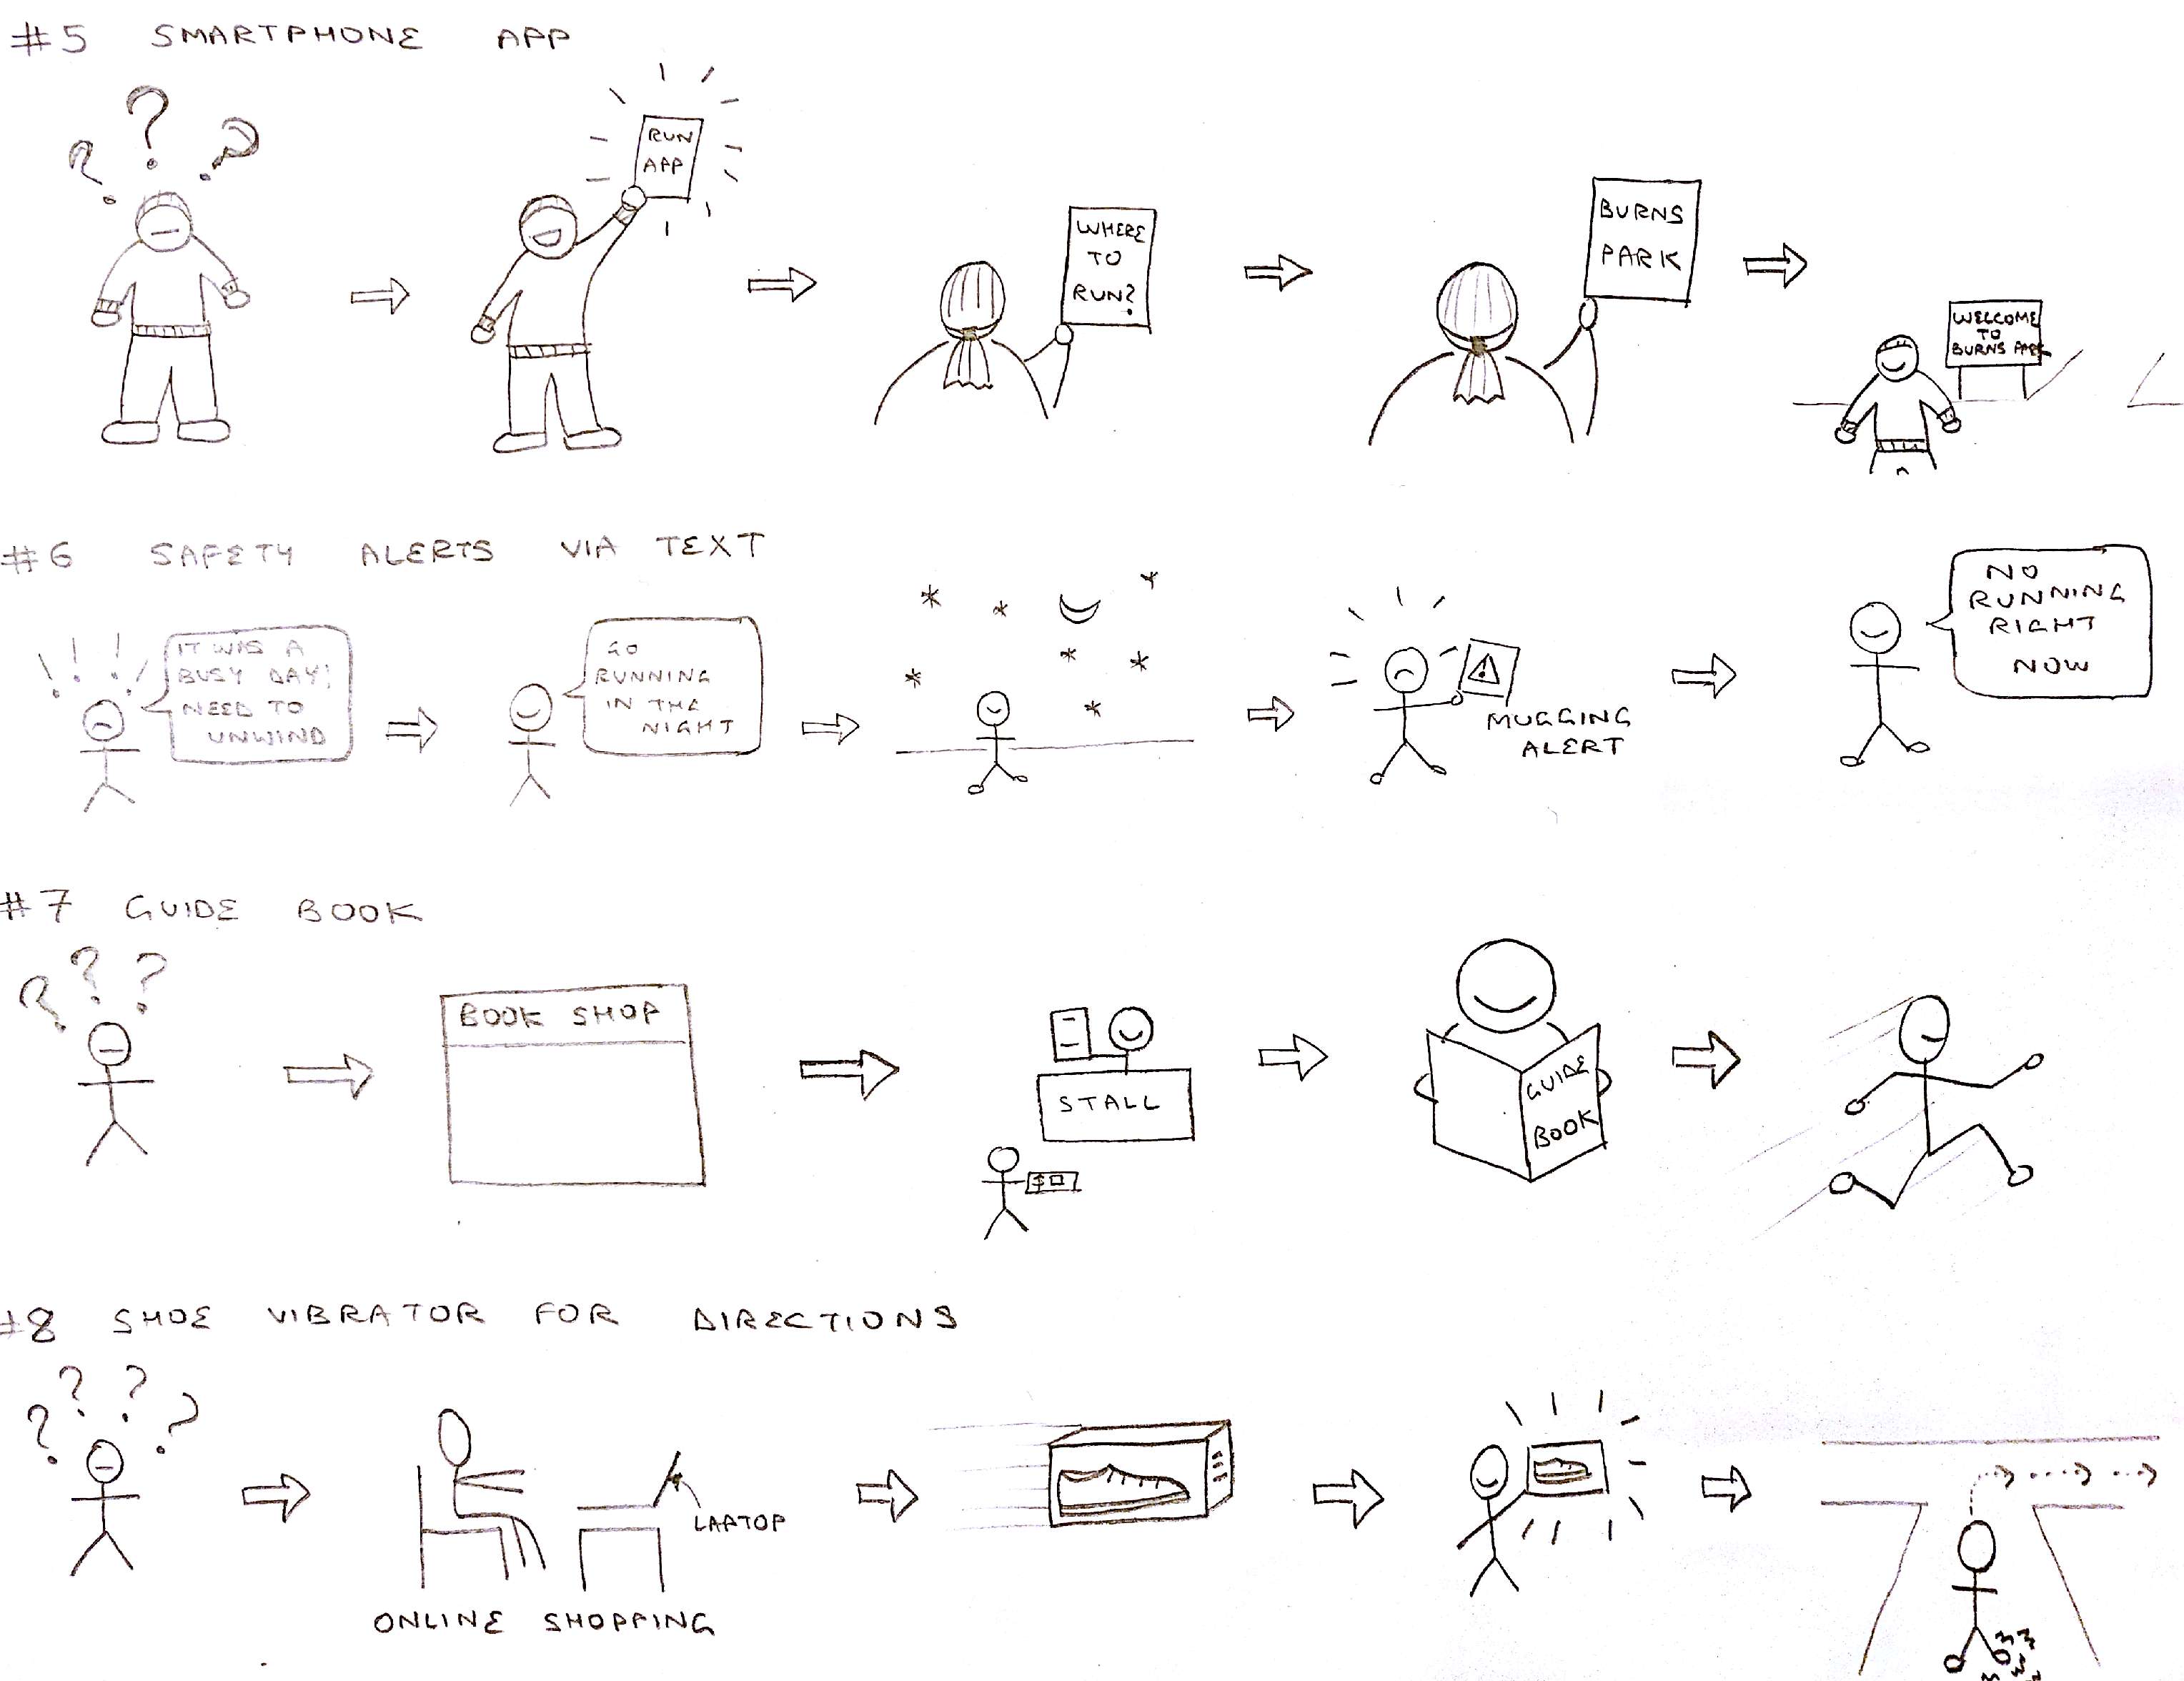 #5 SMARTPHONE APP
? ? ?
RUN
APP
WHERE
TO
RUN?
BURNS
PARK
WELCOME
TO
BURNS PARK
#6 SAFETY ALERTS VIA TEXT
! ! ! !
IT WAS A
BUSY DAY;
NEED TO
UNWIND
GO
RUNNING
IN THE
NIGHT
!
MUGGING
ALERT
NO
RUNNING
RIGHT
NOW
#7 GUIDE BOOK
? ? ?
BOOK SHOP
STALL
$
GUIDE
BOOK
#8 SHOE VIBRATOR FOR DIRECTIONS
? ? ? ?
LAPTOP
ONLINE SHOPPING